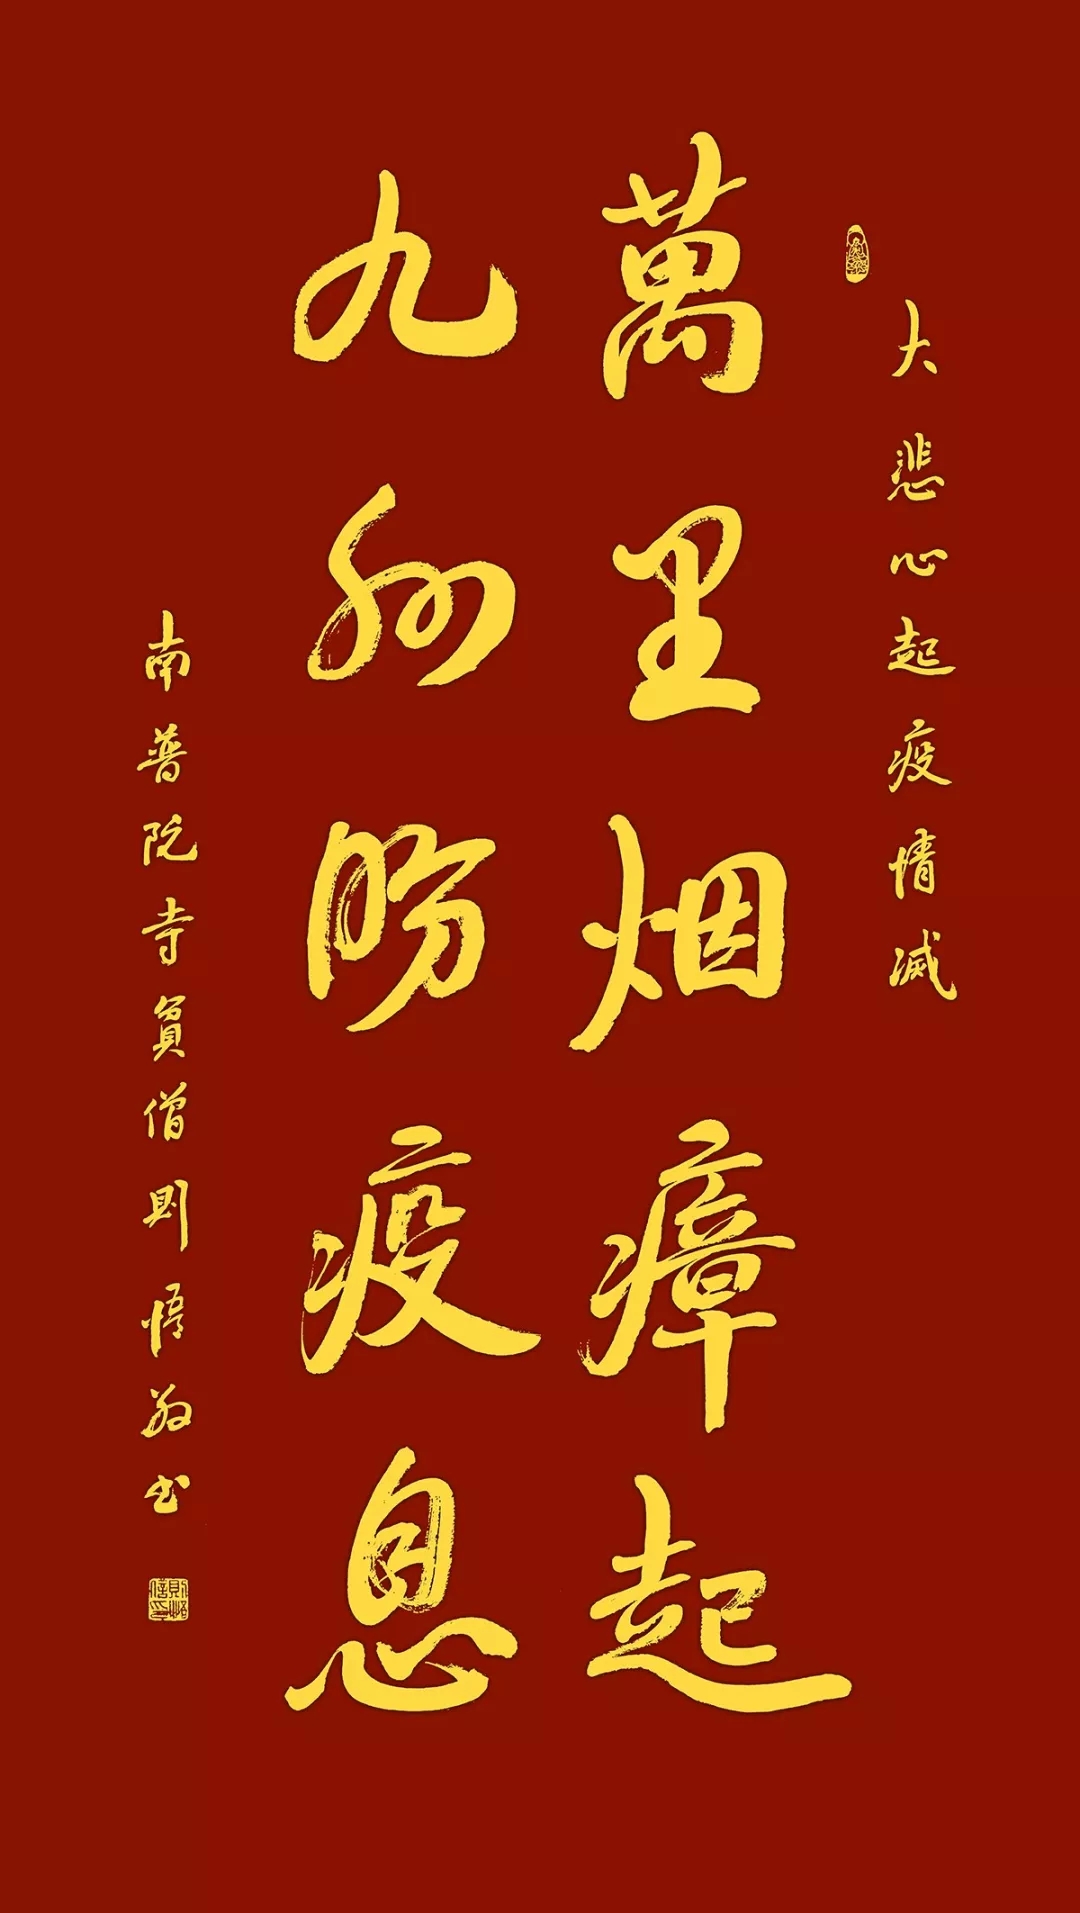 大悲心起疫情滅
萬里烟瘴起
九州防疫息
南普陀寺貧僧則悟敬书
則悟